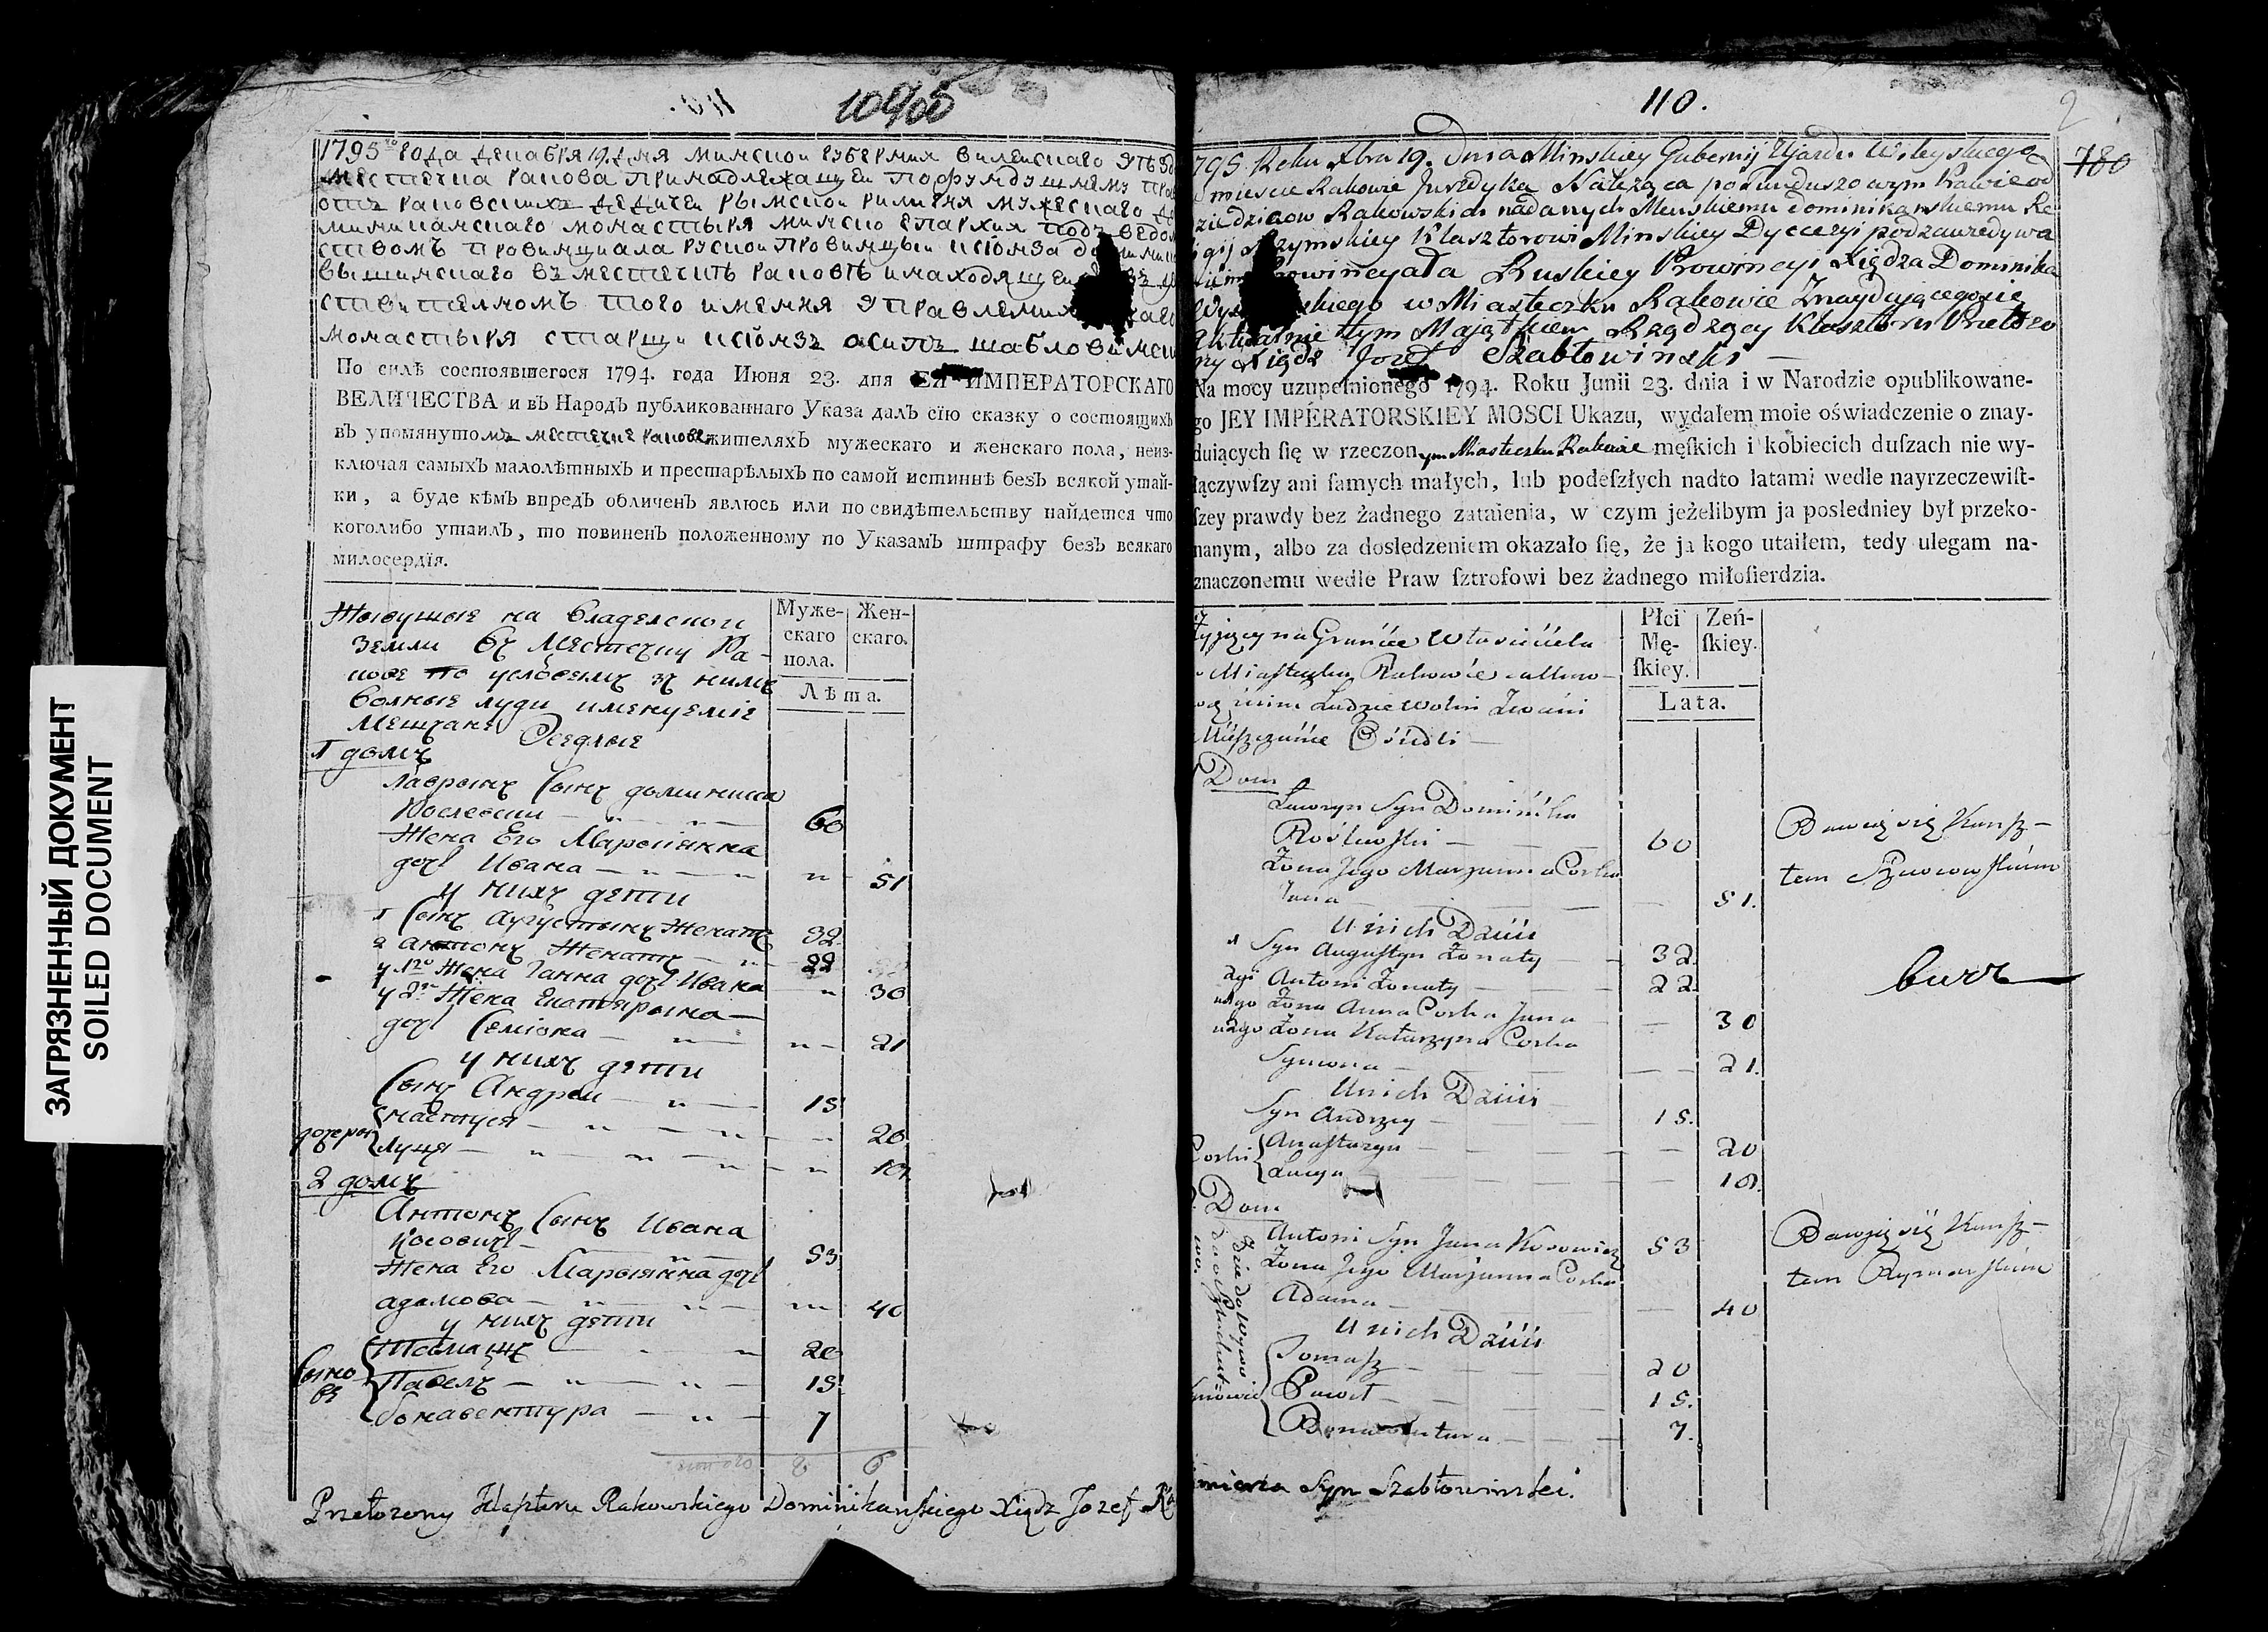 ЗАГРЯЗНЕННЫЙ ДОКУМЕНТ
SOILED DOCUMENT
1795го года декабря 19. дня минской губерния вилейскаго
местечка ракова принадлежащей пофундушнему
отъ раковскихъ дедичеи рымской рилигия мужескаго
миниканскаго монастыря минско епархия подъ
ствомъ провинциала руской провинцыи ксіонза
вышинскаго въ местечкѣ раковѣ инаходящеи
ствителномъ того имения управления
монастыря старши ксіонзъ осипъ шабловински
По силѣ состоявшегося 1794. года Июня 23. дня ЕЯ ИМПЕРАТОРСКАГО
ВЕЛИЧЕСТВА и въ Народъ публикованнаго Указа далъ сїю сказку о состоящихъ
въ упомянутомъ местечке ракове жителяхъ мужескаго и женскаго пола, неиз-
ключая самыхъ малолѣтныхъ и престарѣлыхъ по самой истиннѣ безъ всякой утай-
ки, а буде кѣмъ впредъ обличенъ явлюсь или по свидѣтельству найдется что
коголибо утаилъ, то повиненъ положенному по Указамъ штрафу безъ всякаго
милосердїя.
Муже-скаго пола. Жен-скаго.
Лѣта.
Живущые на владелской
земли въ Местечку Ра-
кове по условемъ зъ нимъ
волные луди именуеміе
Мещане Оседлые
1 домъ
Лаврынъ Сынъ доминика
Рослевски 60
Жена Его Марсиянна
дочь Ивана 51
у нихъ дети
1 Сынъ Аугустынъ Женатъ 32
2 антонъ Женатъ 22
у 1го Жена Ганна дочь Ивана 30
у 2го Жена Екатярына
дочь Семіона 21
у нихъ дети
Сынъ Андреи 15
дочеры Настуся 20
Луция 10
2 домъ
Антонъ Сынъ Ивана
Косовичъ 53
Жена Его Марыянна дочь
адамова 40
у нихъ дети
Сыновя Томашъ 20
Павелъ 15
бонавентура 7
6
Przełożony Klasztoru Rakowskiego Dominikanskiego Xiądz Jozef
110.
2
780
795. Roku Xbra 19. dnia Minskiey Gubernij Ujazdu Wileyskiego
miescie Rakowie Juryzdyka Należąca po Funduszowym Prawie od
dziedzicow Rakowskich nadanych Minskiemu dominikanskiemu Re
Rzymskiey Klasztorowi Minskiey Dyecezyi pod zawiedywa
Prowincyała Ruskiey Prowincyi Xiędza Dominika
w Miasteczku Rakowie Znaydującegosię
aktualnie tym Majątkiem Rządzący Klasztoru Przełożo
ny Xiądz Jozef Szabłowinski
Na mocy uzupełnionego 1794. Roku Junii 23. dnia i w Narodzie opublikowane-
go JEY IMPERATORSKIEY MOSCI Ukazu, wydałem moie oświadczenie o znay-
duiących ſię w rzeczonym Miasteczku Rakowie męſkich i kobiecich duſzach nie wy-
łączywſzy ani ſamych małych, lub podeſzłych nadto latami wedle nayrzeczewiſt-
ſzey prawdy bez żadnego zataienia, w czym jeżelibym ja posledniey był przeko-
nanym, albo za dosledzeniem okazało ſię, że ja kogo utaiłem, tedy ulegam na-
znaczonemu wedle Praw ſztrofowi bez żadnego miłoſierdzia.
Płci Mę-ſkiey. Zeń-ſkiey.
Lata.
yjący na Gruńcie Własciciela
Miasteczku Rakowie
z nim Ludzie Wolni Zwani
Mieszczanie Osiedli
Dom
Ławryn Syn Dominika
Rosłewski 60
Zona Jego Maryanna Corka
Jana 51.
U nich Dzieci
1 Syn Augustyn Zonaty 32.
2gi Antoni Zonaty 22
u 1go Zona Anna Corka Jana 30
u 2go Zona Katarzyna Corka
Symona 21.
U nich Dzieci
Syn Andrzey 15.
Corki Anastazya 20
Łucya 10.
Dom
Antoni Syn Jana Kosowicz 53
Zona Jego Maryanna Corka
Adama 40
U nich Dzieci
Tomasz 20
Paweł 15.
Bonawentura 7.
Bawią się Kunsz-
tem
Bawią się Kunsz-
tem Rymarskim
mierza Syn Szabłowinski.